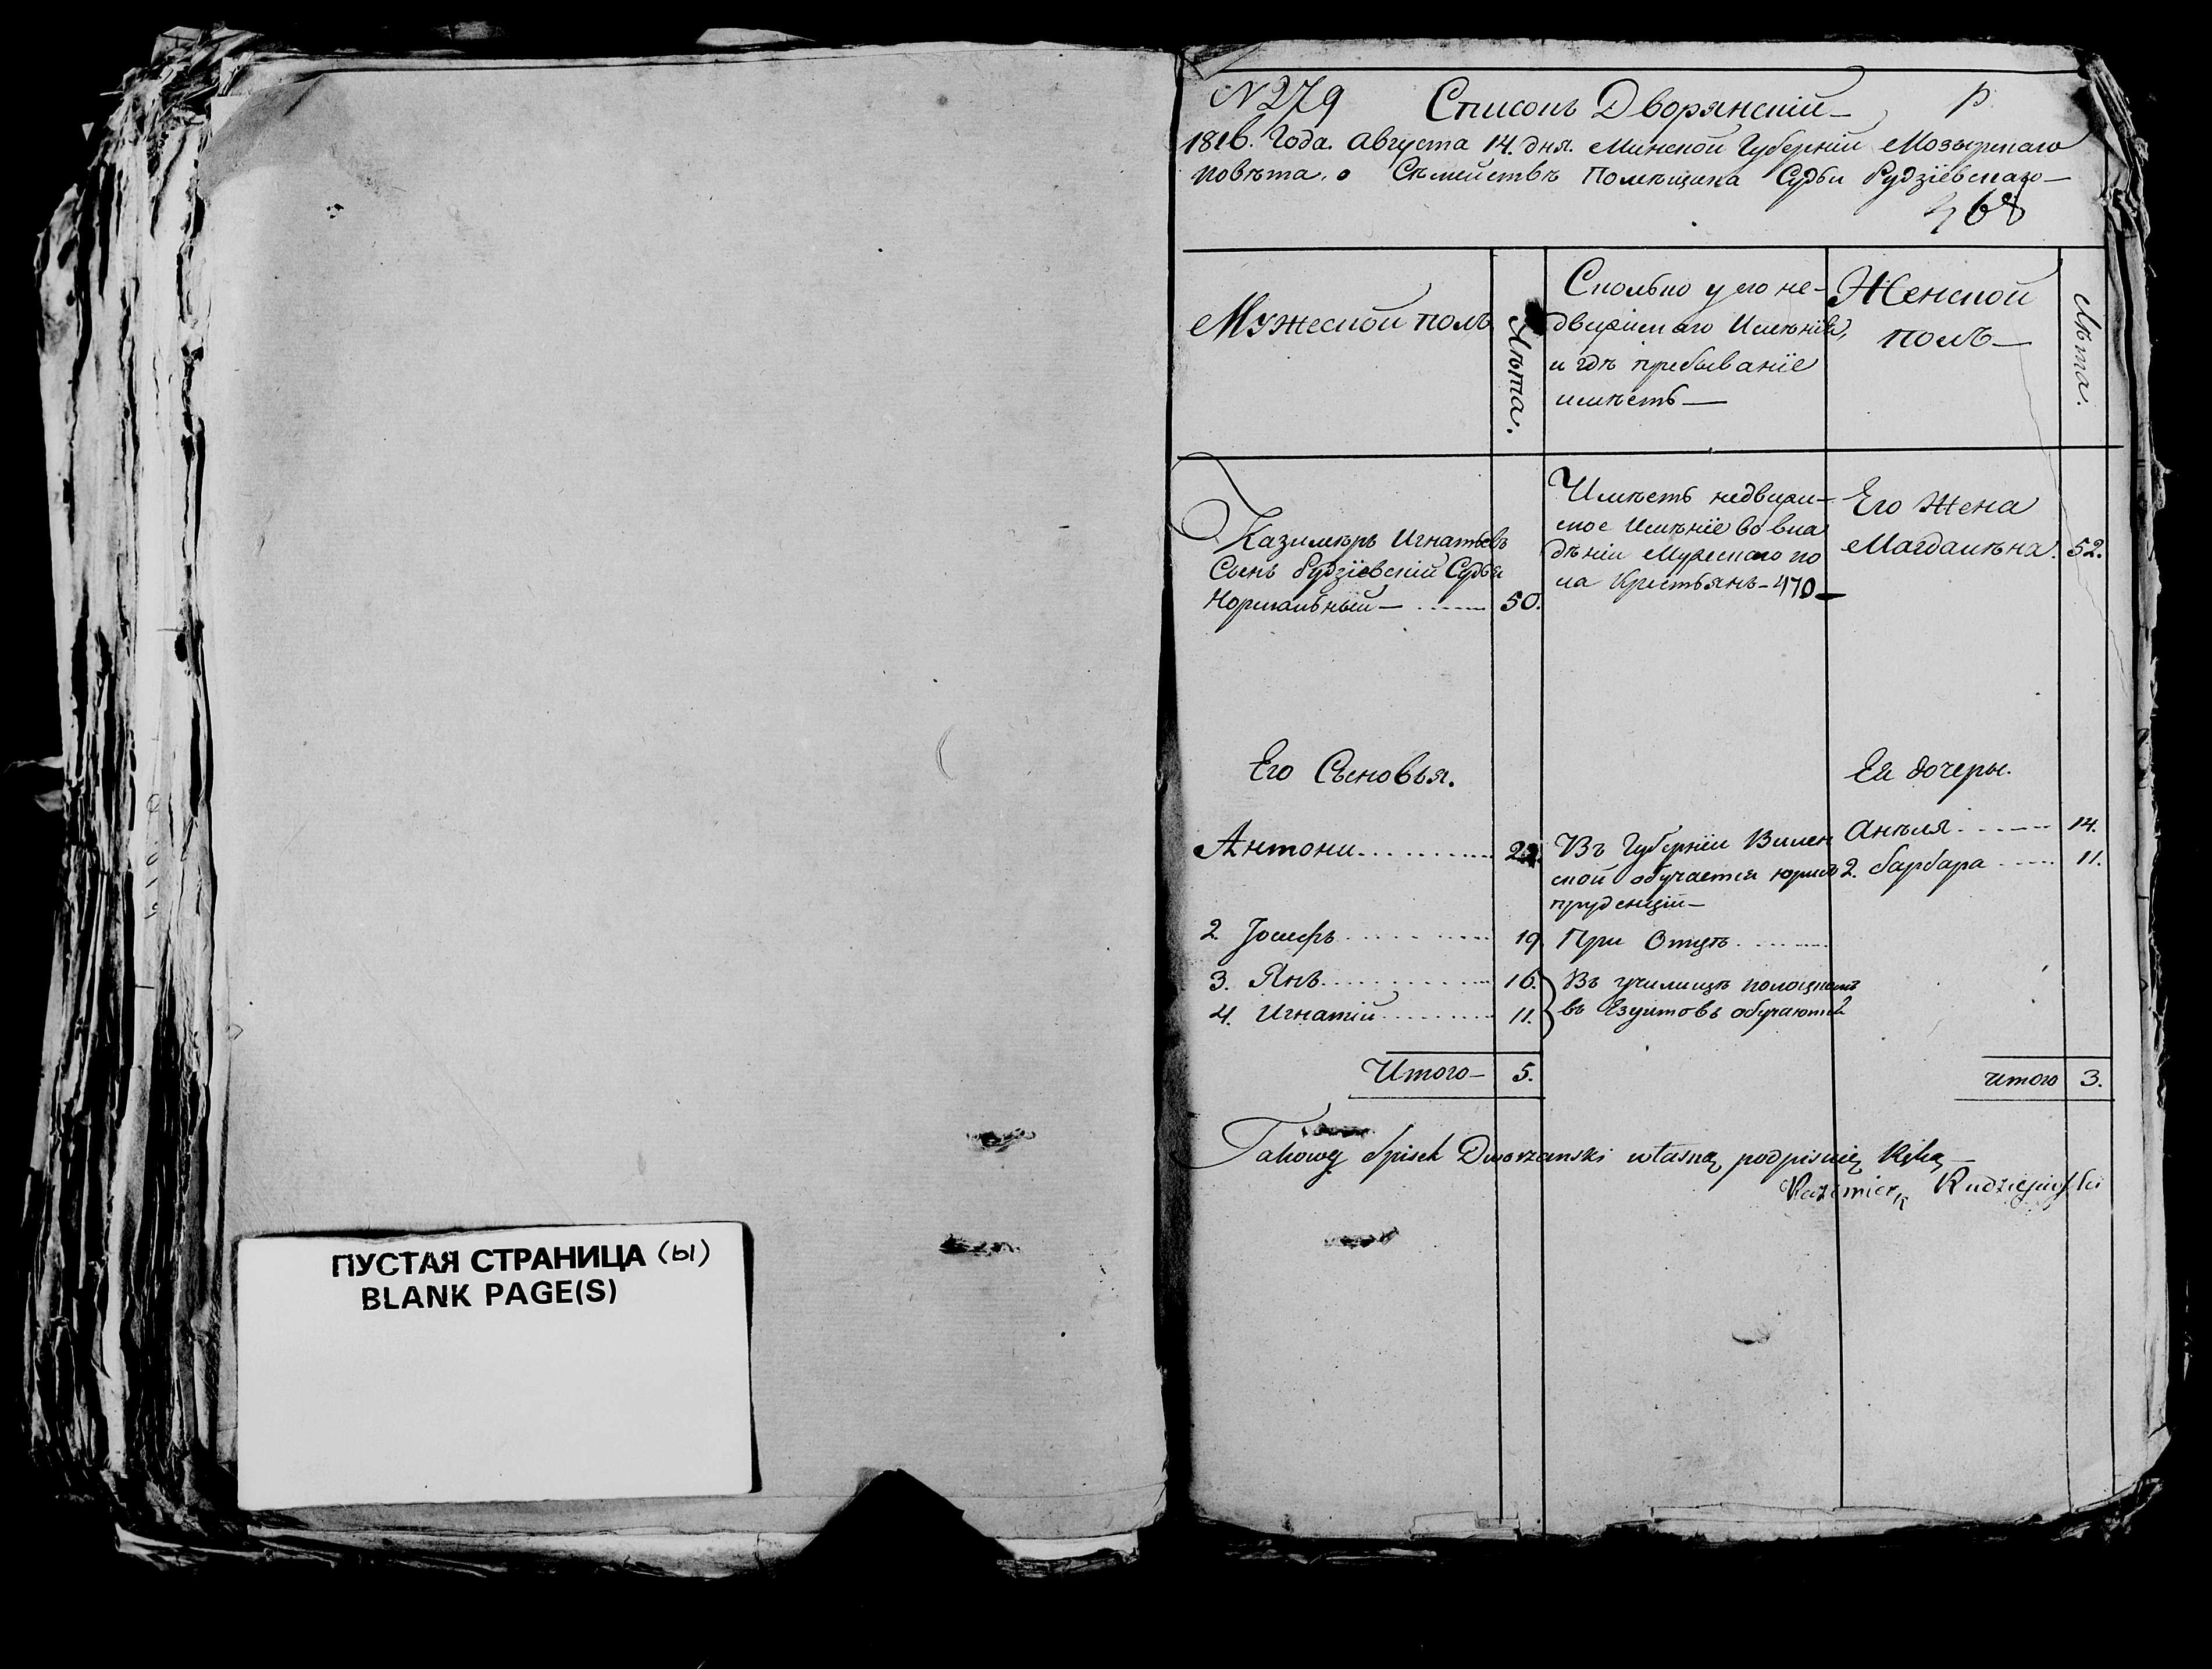 ПУСТАЯ СТРАНИЦА (ы)
BLANK PAGE(S)
№ 279 Списокъ Дворянскій р
1816. Года. Августа 14. дня. Минской Губерніи Мозырскаго
повѣта, о Сѣмействѣ Помѣщика Судьи Рудзіевскаго
468
Мужеской полъ
Лѣта.
Сколько у его не-
движимаго Имѣнія,
и гдѣ пребываніе
имѣетъ
Женской
полъ
Лѣта.
Казимѣръ Игнатьевъ
Сынъ Рудзіевскій Судья
Нормальный 50.
Имѣетъ недвижи-
мое Имѣніе во вла
дѣніи Мужескаго по
ла Крестьянъ - 470
Его Жена
Магдалѣна. 52.
Его Сыновья.
Ея дочеры.
Антони
Въ Губерніи Вилен
ской обучается юрис
пруденціи
2. Іосифъ 19. При Отцѣ
3. Янъ 16.
4. Игнатій 11.
Въ училищѣ полоцкомъ
въ Езуитовъ обучаются
Анѣля 14.
2. Барбара 11.
Итого 5.
итого 3.
Takowy Spisek Dworzanski własną podpisuię Ręką
Kazimierz Rudziejewski